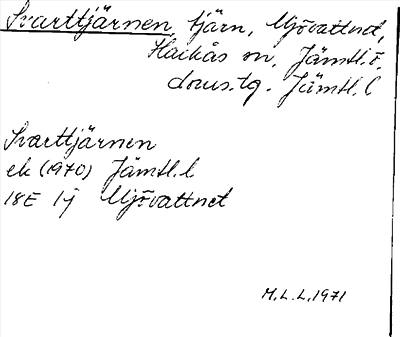 Svarttjärnen, tjärn, Mjövattnet,
Haikås sn, Jämtl. F,
doms.tg. Jämtl. l
Svarttjärnen
ek (1970) Jämtl. l
18E 1j Mjövattnet
M.L.L. 1971